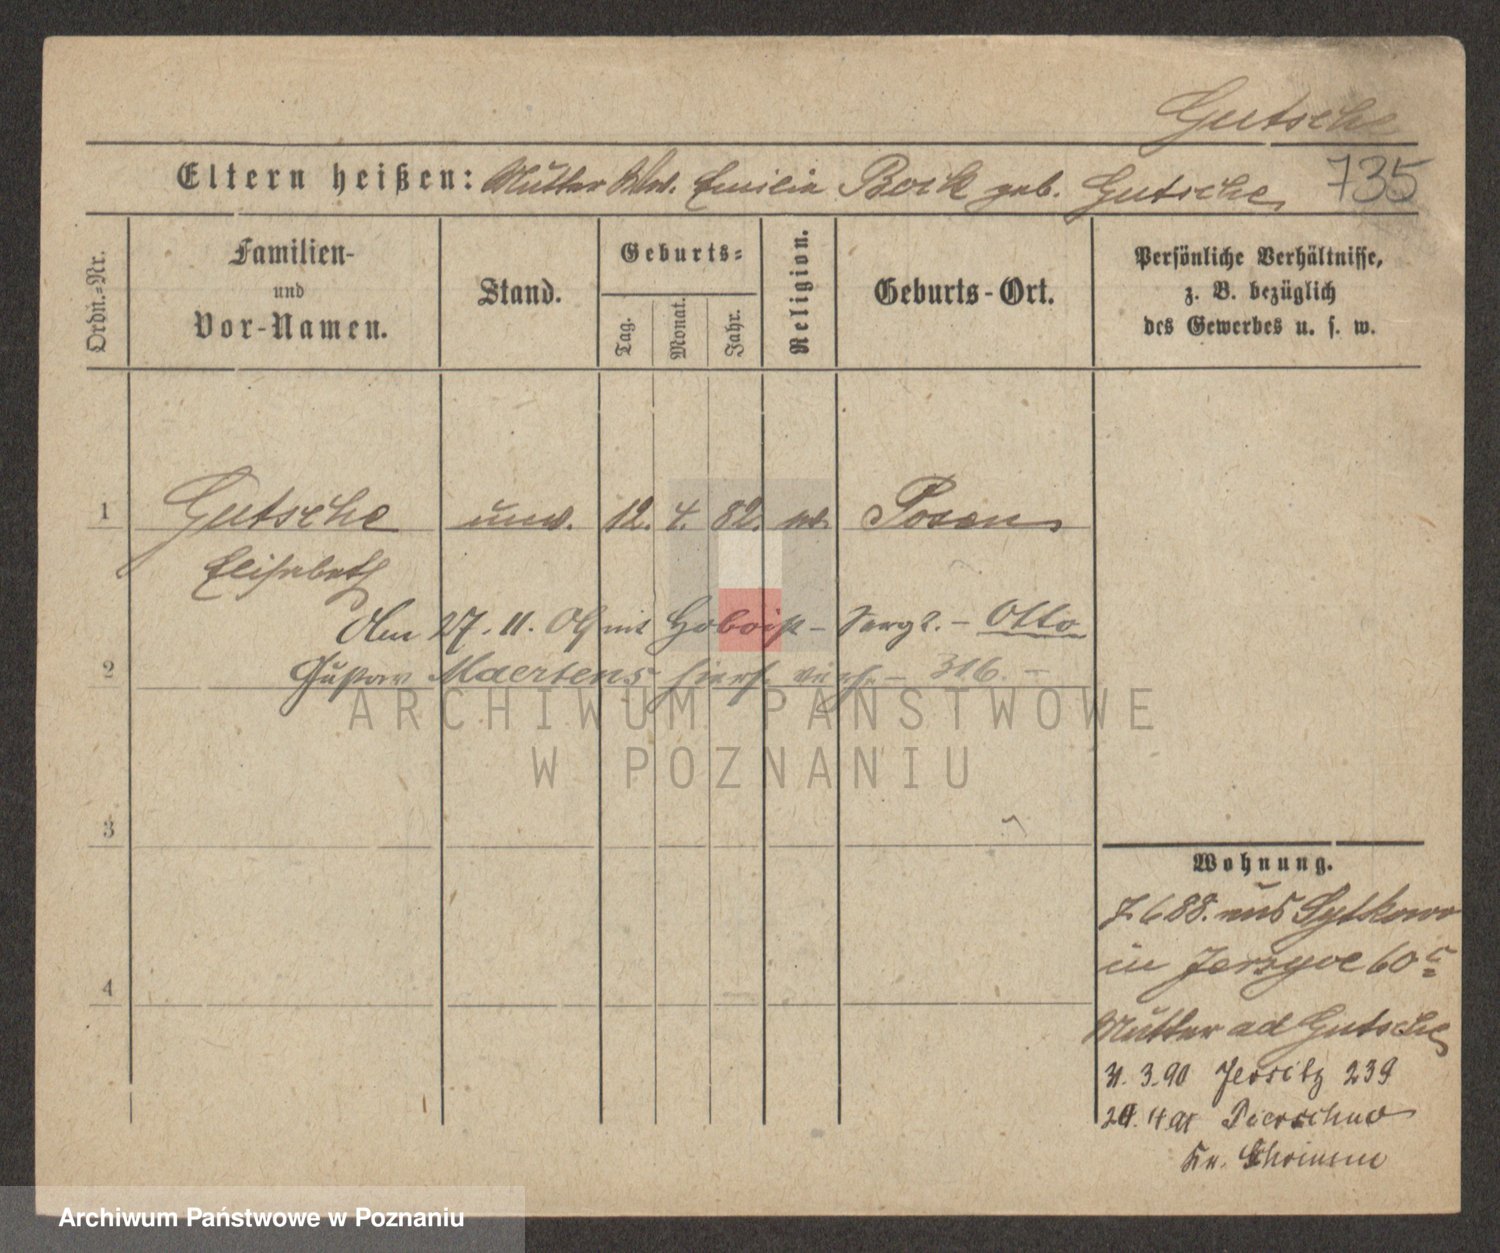 Gutsche
Eltern heißen: Mutter Wwe. Emilie Bock geb. Gutsche
735
Ordn.-Nr.
Familien-
und
Vor-Namen.
Stand.
Geburts-
Tag.
Monat.
Jahr.
Religion.
Geburts-Ort.
Persönliche Verhältnisse,
z. B. bezüglich
des Gewerbes u. s. w.
1 Gutsche unv. 12. 4. 82. ev. Posen
Elisabeth
Am 27. 11. 04 mit Hoboist- Sergt. - Otto
2 Gustav Maertens hiers. vereh. - 316. -
3
4
Wohnung.
7. 6 88. aus Sytkowo
in Jerzyce 60 c
Mutter ad Gutsche
31. 3. 90 Jersitz 239
Pierschno
Kr. Schrimm
ARCHIWUM PAŃSTWOWE
W POZNANIU
Archiwum Państwowe w Poznaniu